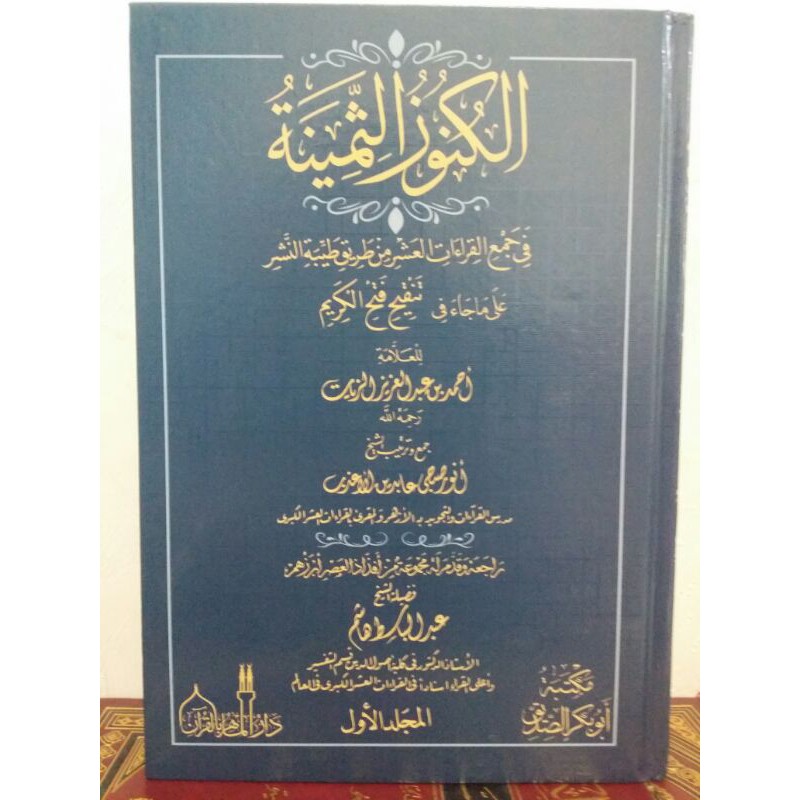 الكُنُوزُ الثَّمِينَةُ
فِي جَمْعِ القِرَاءَاتِ العَشْرِ مِن طَرِيقِ طَيِّبَةِ النَّشْرِ
عَلَى مَا جَاءَ فِي تَنْقِيحِ فَتْحِ الكَرِيمِ
للعلَّامَة
أحمد بن عبد العزيز الزيات
رحمه الله
جمع وترتيب الشيخ
أنور صبحي عابدين
مدرس القراءات والتجويد بالأزهر والمقرئ بالقراءات العشر الكبرى
راجعه وقدم له مجموعة من أفذاذ العصر أبرزهم
فضيلة الشيخ
عبد الباسط هاشم
الأستاذ الدكتور في كلية أصول الدين قسم التفسير
وأعلى القراء إسنادًا في القراءات العشر الكبرى في العالم
المجلد الأول
مكتبة
أبو بكر الصديق
دار بالقرآن